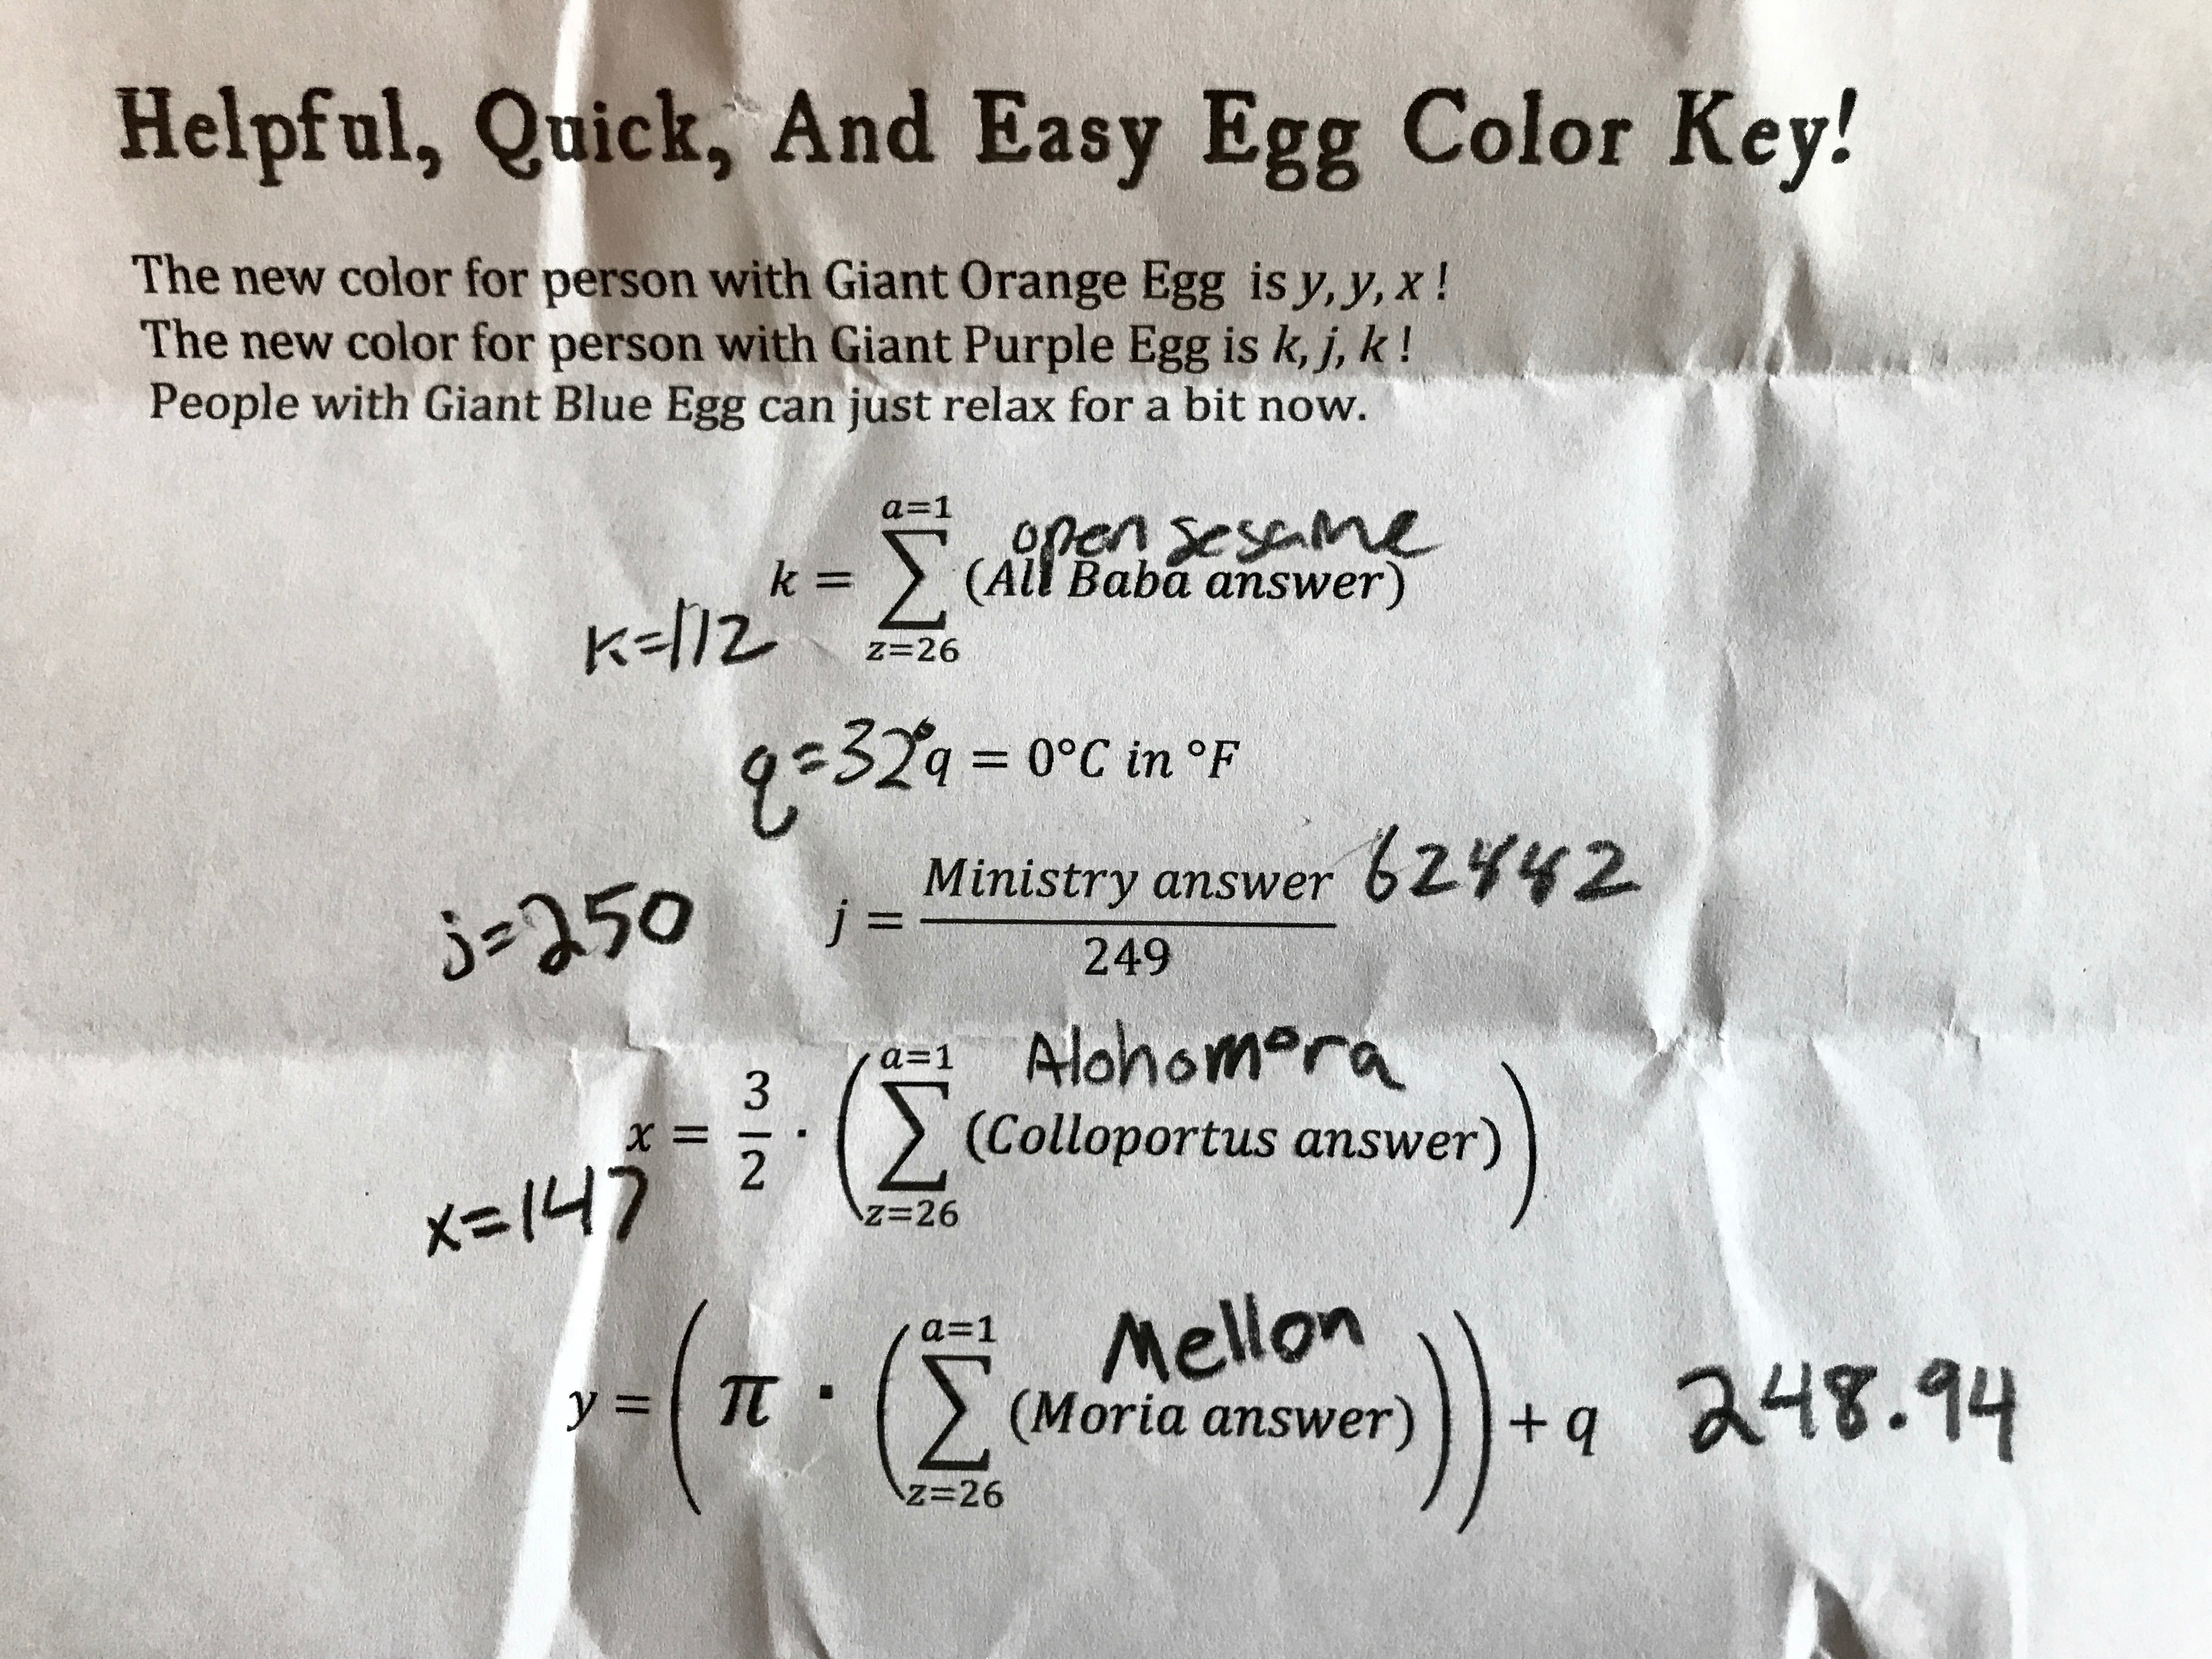 Helpful, Quick, And Easy Egg Color Key!
The new color for person with Giant Orange Egg is y, y, x !
The new color for person with Giant Purple Egg is k, j, k !
People with Giant Blue Egg can just relax for a bit now.
a=1
open sesame
k = ∑ (Ali Baba answer)
z=26
K=112
q=32° q = 0°C in °F
j=250
j = Ministry answer / 249
62442
a=1
Alohomora
x = 3/2 · (∑ (Colloportus answer))
z=26
x=147
a=1
Mellon
y = (π · (∑ (Moria answer))) + q 248.94
z=26